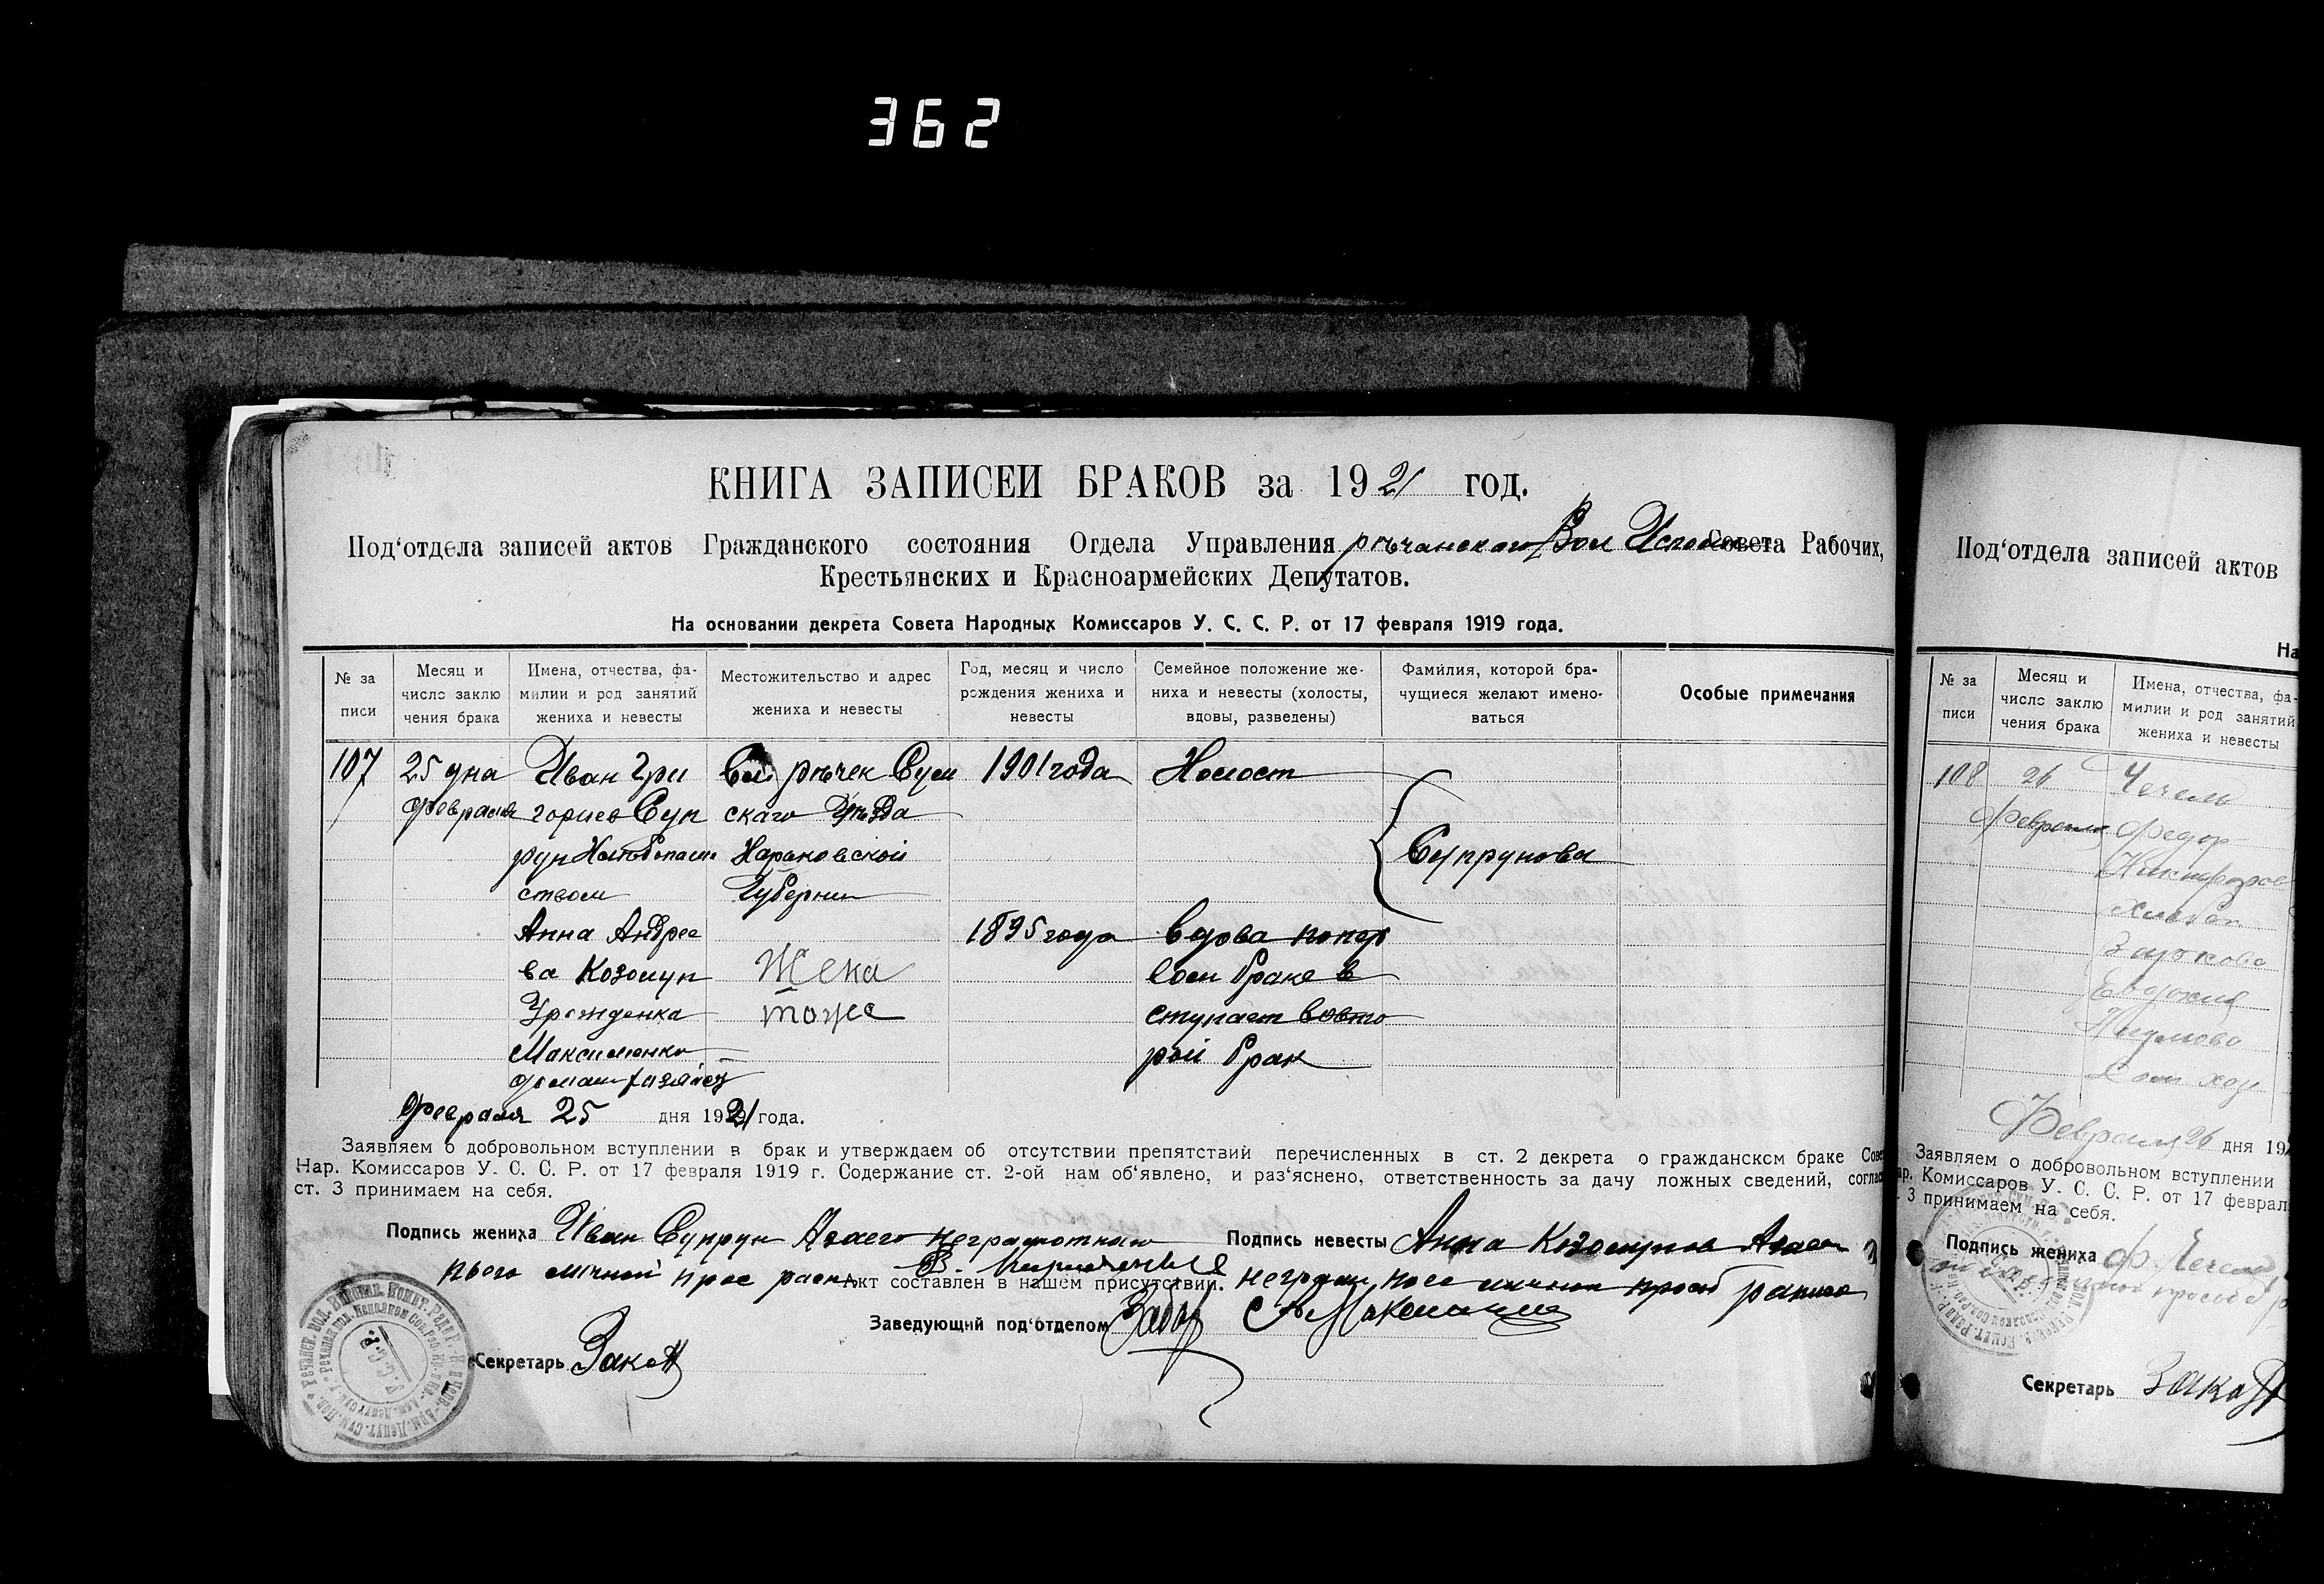 362
КНИГА ЗАПИСЕЙ БРАКОВ за 1921 год.
Под‘отдела записей актов Гражданского состояния Отдела Управления рѣчанского Вол Исполк Совета Рабочих,
Крестьянских и Красноармейских Депутатов.
На основании декрета Совета Народных Комиссаров У. С. С. Р. от 17 февраля 1919 года.
№ за писи
Месяц и число заклю чения брака
Имена, отчества, фа- милии и род занятий жениха и невесты
Местожительство и адрес жениха и невесты
Год, месяц и число рождения жениха и невесты
Семейное положение же- ниха и невесты (холосты, вдовы, разведены)
Фамилия, которой бра- чущиеся желают имено- ваться
Особые примечания
107
25 дна
февраля
Иван Гри
гориев Суп
рун Хлебопаше
ством
Сел рѣчек Сум
скаго Уѣзда
Харковской
Губернии
1901 года
Холост
Супрунова
Анна Андрее
ва Козолуп
Урожденка
Максименко
домаш хозяйст
Жека
тоже
1895 года
Вдова попер
вом браке в
ступает вовто
рой брак
Февраля 25 дня 1921 года.
Заявляем о добровольном вступлении в брак и утверждаем об отсутствии препятствий перечисленных в ст. 2 декрета о гражданском браке Сове
Нар. Комиссаров У. С. С. Р. от 17 февраля 1919 г. Содержание ст. 2-ой нам об‘явлено, и раз‘яснено, ответственность за дачу ложных сведений, соглас
ст. 3 принимаем на себя.
Подпись жениха Иван Супрун Азаего неграмотнаго
Подпись невесты Анна Козолупова
пьего личной прос распи
Акт составлен в нашем присутствии.
неграм, поее личной прозб
Заведующий под‘отделом
Секретарь
Под‘отдела записей актов
На
№ за писи
Месяц и числе заклю чения брака
Имена, отчества, фа- милии и род занятий жениха и невесты
108
26
Февраля
Чечель
Федор
Никифоров
хлебоп
Заркова
Евдокия
Наумова
дом хоз
Февраля 26 дня 192
Заявляем о добровольном вступлении
ар. Комиссаров У. С. С. Р. от 17 феврал
. 3 принимаем на себя.
Подпись жениха Ф. Чечель
Секретарь